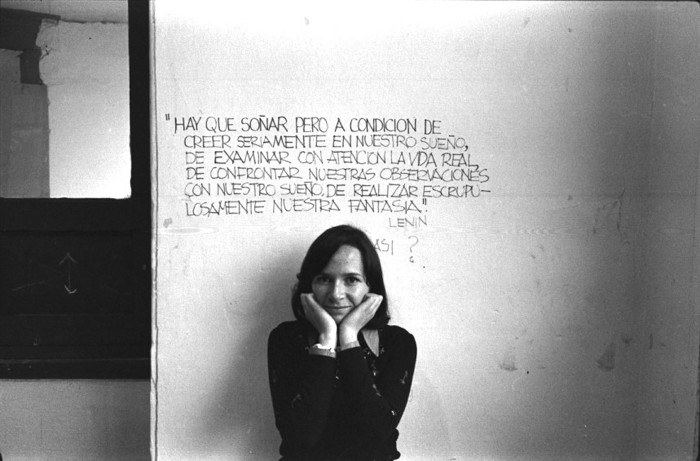 "HAY QUE SOÑAR PERO A CONDICION DE
CREER SERIAMENTE EN NUESTRO SUEÑO,
DE EXAMINAR CON ATENCION LA VIDA REAL,
DE CONFRONTAR NUESTRAS OBSERVACIONES
CON NUESTRO SUEÑO, DE REALIZAR ESCRUPU-
LOSAMENTE NUESTRA FANTASIA".
LENIN
?